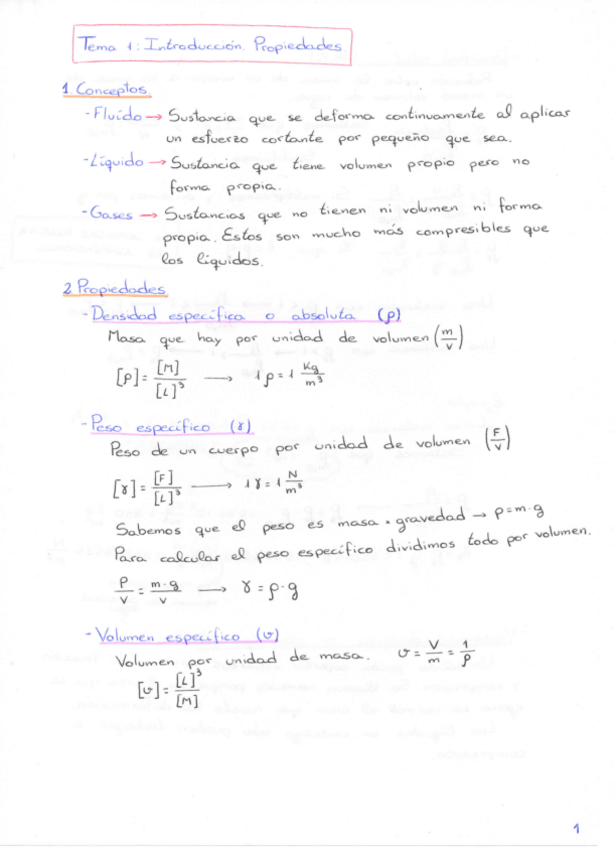 Tema 1: Introducción. Propiedades
1. Conceptos.
- Fluido → Sustancia que se deforma continuamente al aplicar
un esfuerzo cortante por pequeño que sea.
- Líquido → Sustancia que tiene volumen propio pero no
forma propia.
- Gases → Sustancias que no tienen ni volumen ni forma
propia. Estos son mucho más compresibles que
los líquidos.
2. Propiedades.
- Densidad específica o absoluta (ρ)
Masa que hay por unidad de volumen (m/v)
[ρ] = [M]/[L]³ → 1ρ = 1 Kg/m³
- Peso específico (γ)
Peso de un cuerpo por unidad de volumen (F/V)
[γ] = [F]/[L]³ → 1γ = 1 N/m³
Sabemos que el peso es masa · gravedad → p = m·g
Para calcular el peso específico dividimos todo por volumen.
P/V = m·g/V → γ = ρ·g
- Volumen específico (v)
Volumen por unidad de masa. v = V/m = 1/ρ
[v] = [L]³/[M]
1